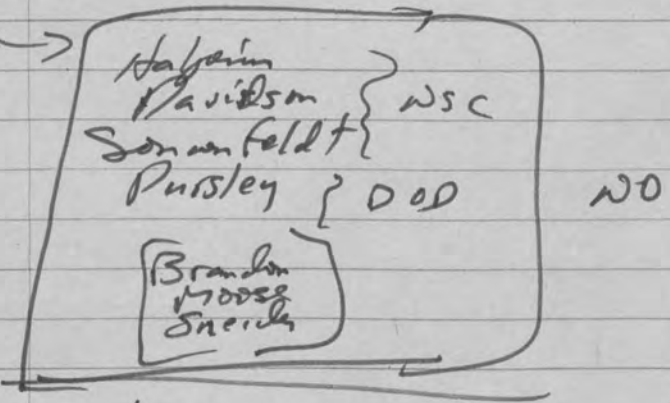 Halperin
Davidson } NSC
Sonnenfeldt
Pursley } DOD NO
Brandon
Moose
Sneider